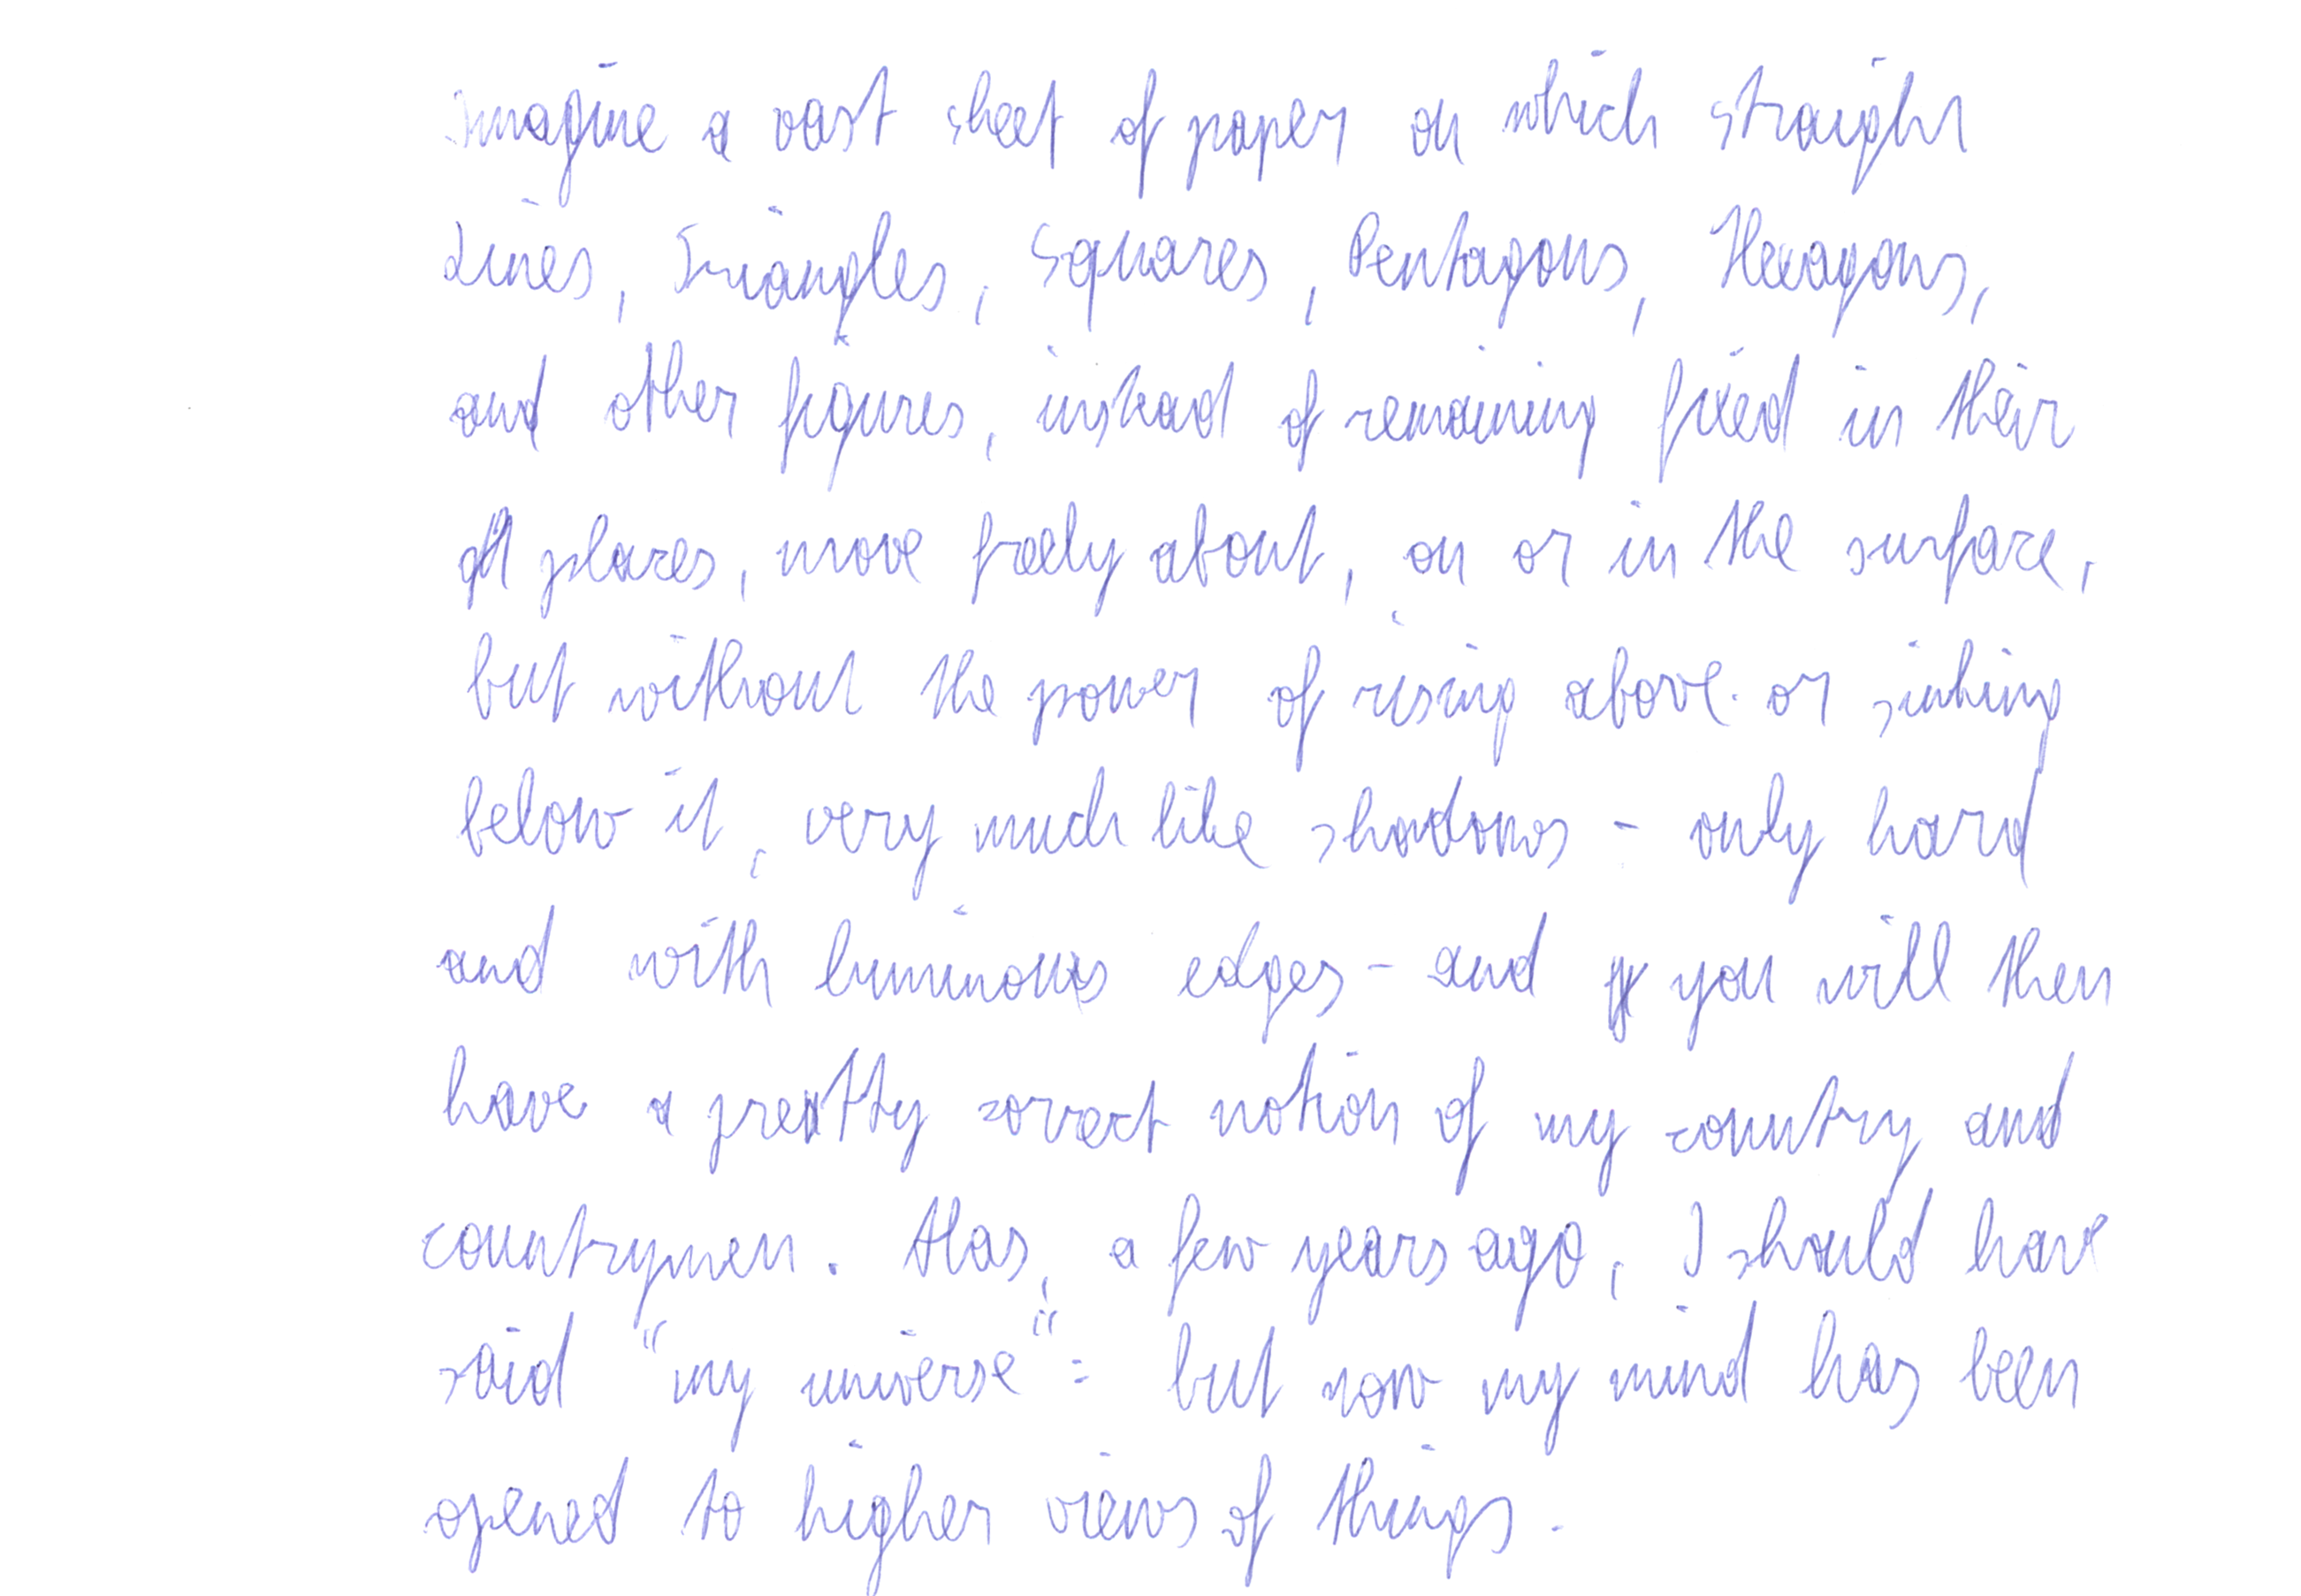 Imagine a vast sheet of paper on which straight
Lines, Triangles, Squares, Pentagons, Hexagons,
and other figures, instead of remaining fixed in their
places, move freely about, on or in the surface,
but without the power of rising above or sinking
below it, very much like shadows - only hard
and with luminous edges - and you will then
have a pretty correct notion of my country and
countrymen. Alas, a few years ago, I should have
said "my universe": but now my mind has been
opened to higher views of things.